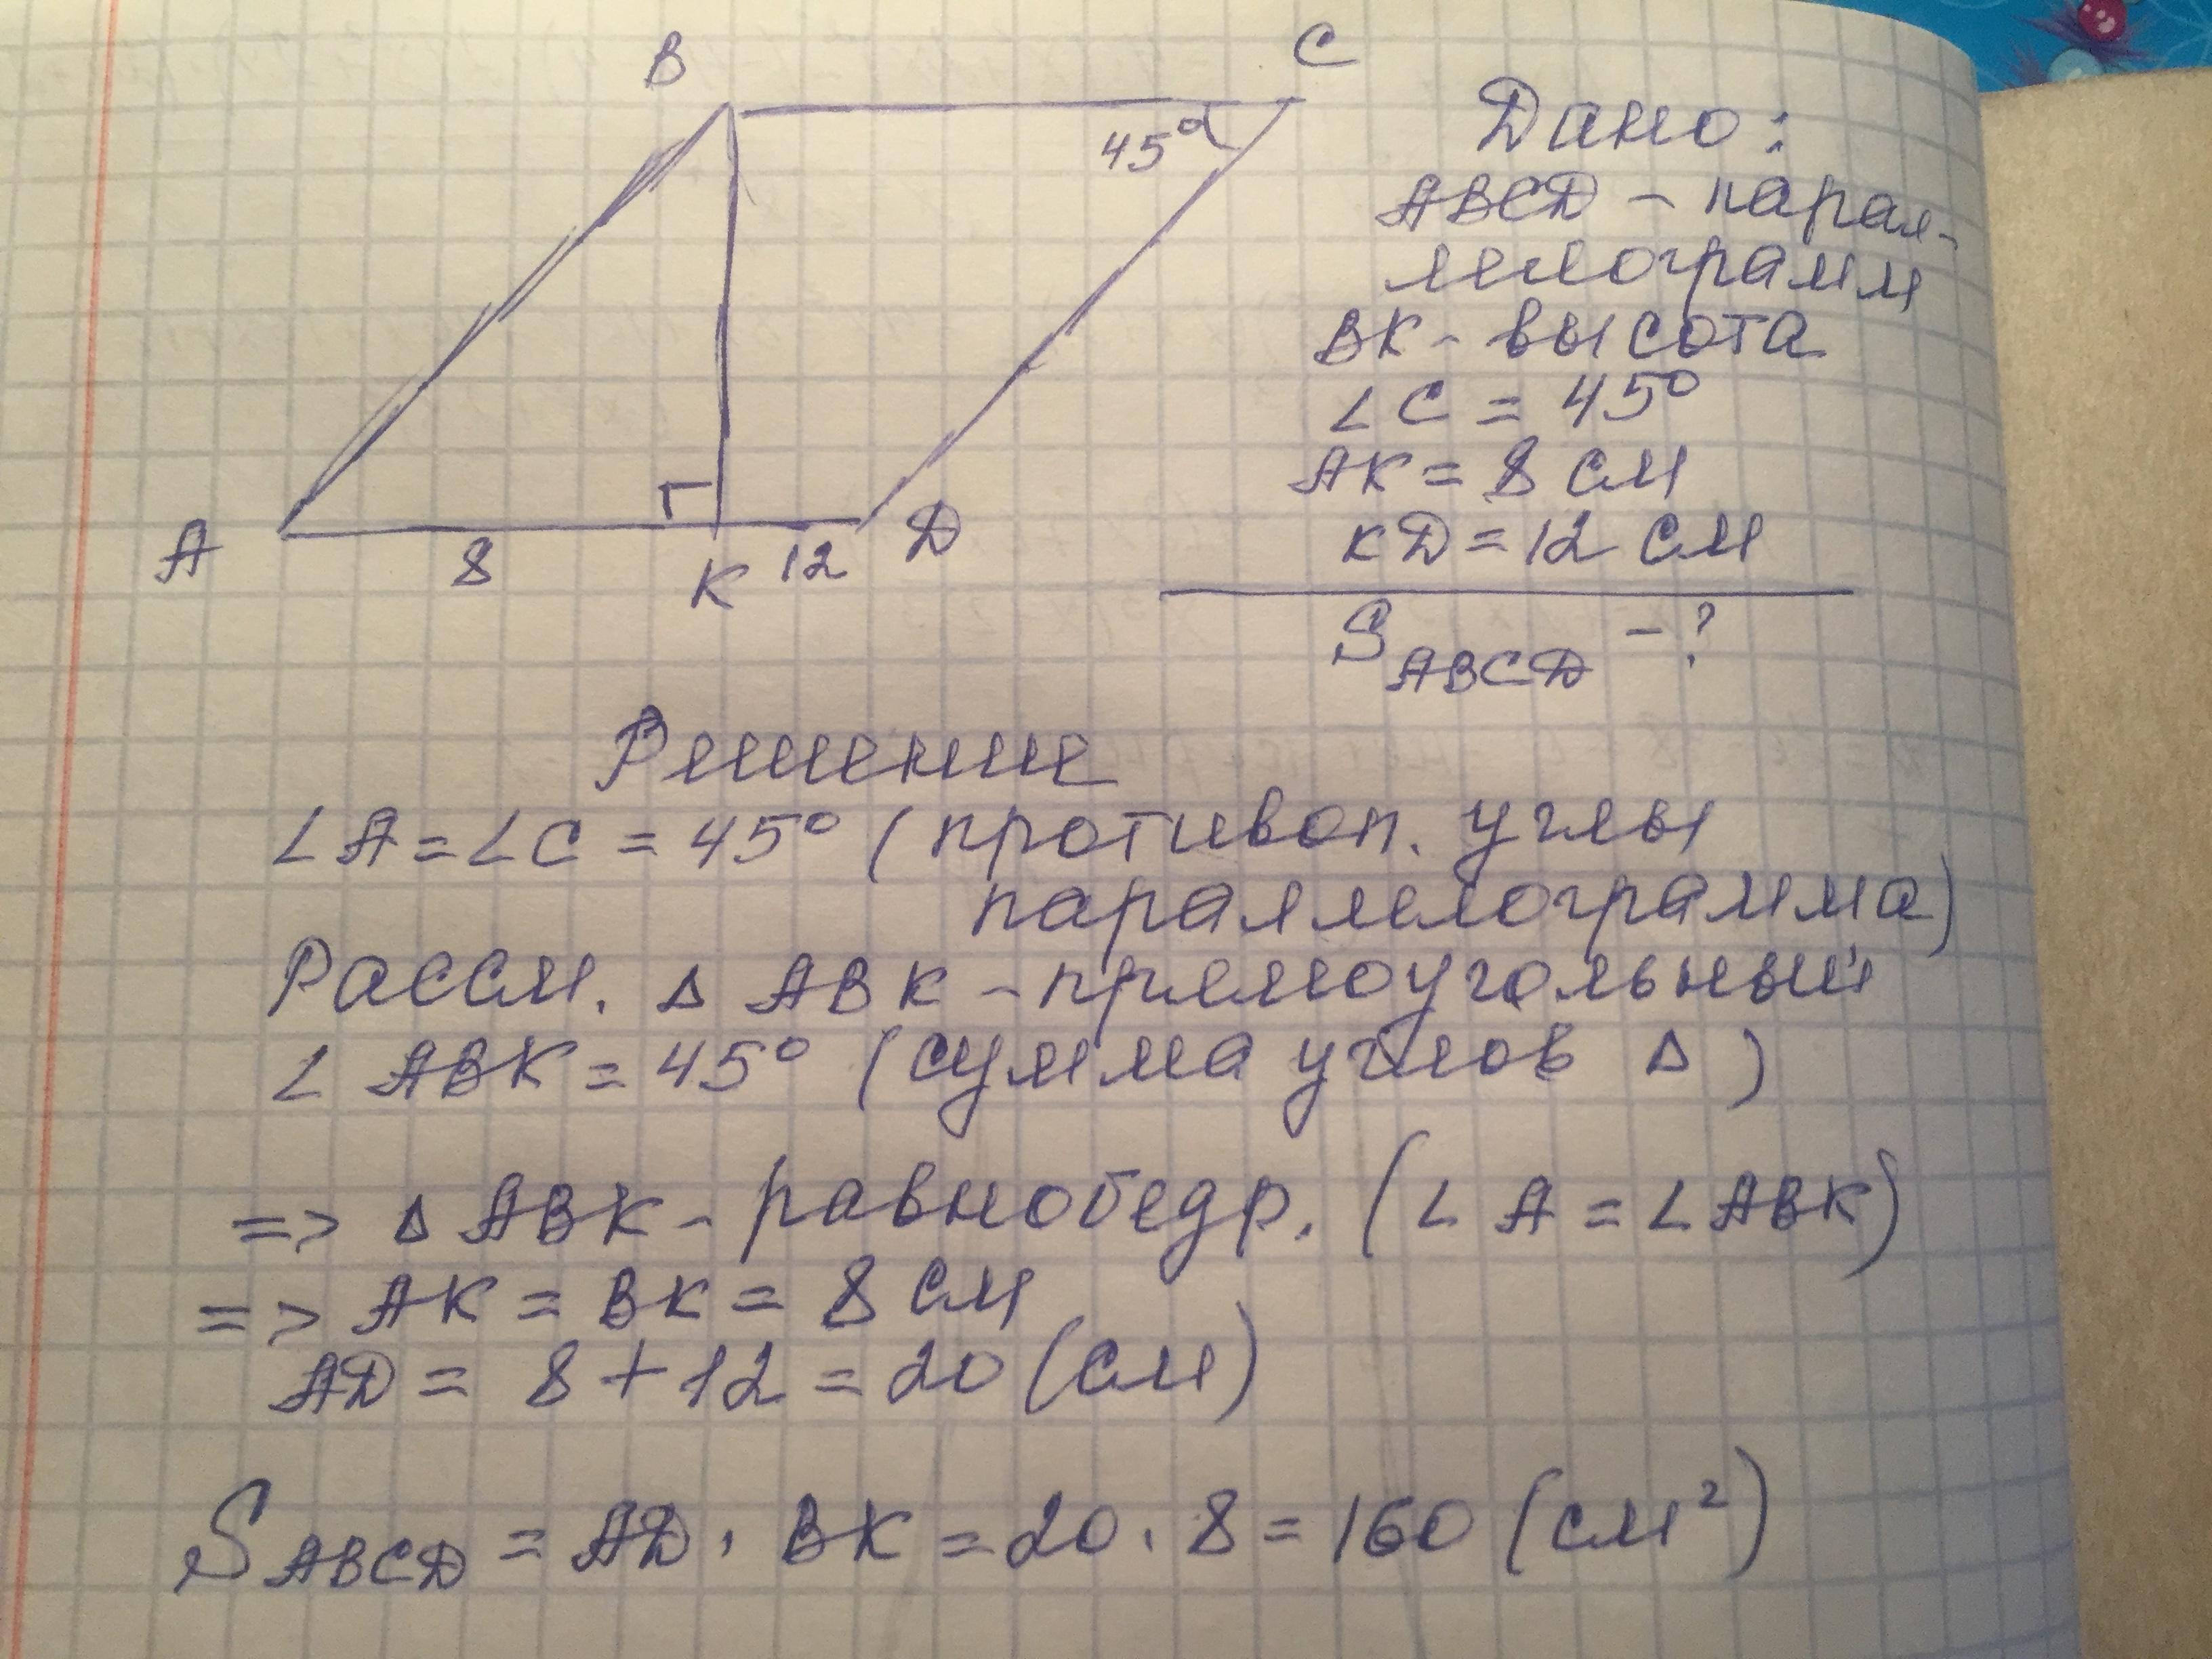 B
C
45°
A
8
K
12
D
Дано:
ABCD - парал-
лелограмм
BK - высота
∠C = 45°
AK = 8 см
KD = 12 см
S ABCD - ?
Решение
∠A = ∠C = 45° (противоп. углы
параллелограмма)
Рассм. △ ABK - прямоугольный
∠ ABK = 45° (сумма углов △)
=> △ ABK - равнобедр. (∠ A = ∠ ABK)
=> AK = BK = 8 см
AD = 8 + 12 = 20 (см)
S ABCD = AD · BK = 20 · 8 = 160 (см²)